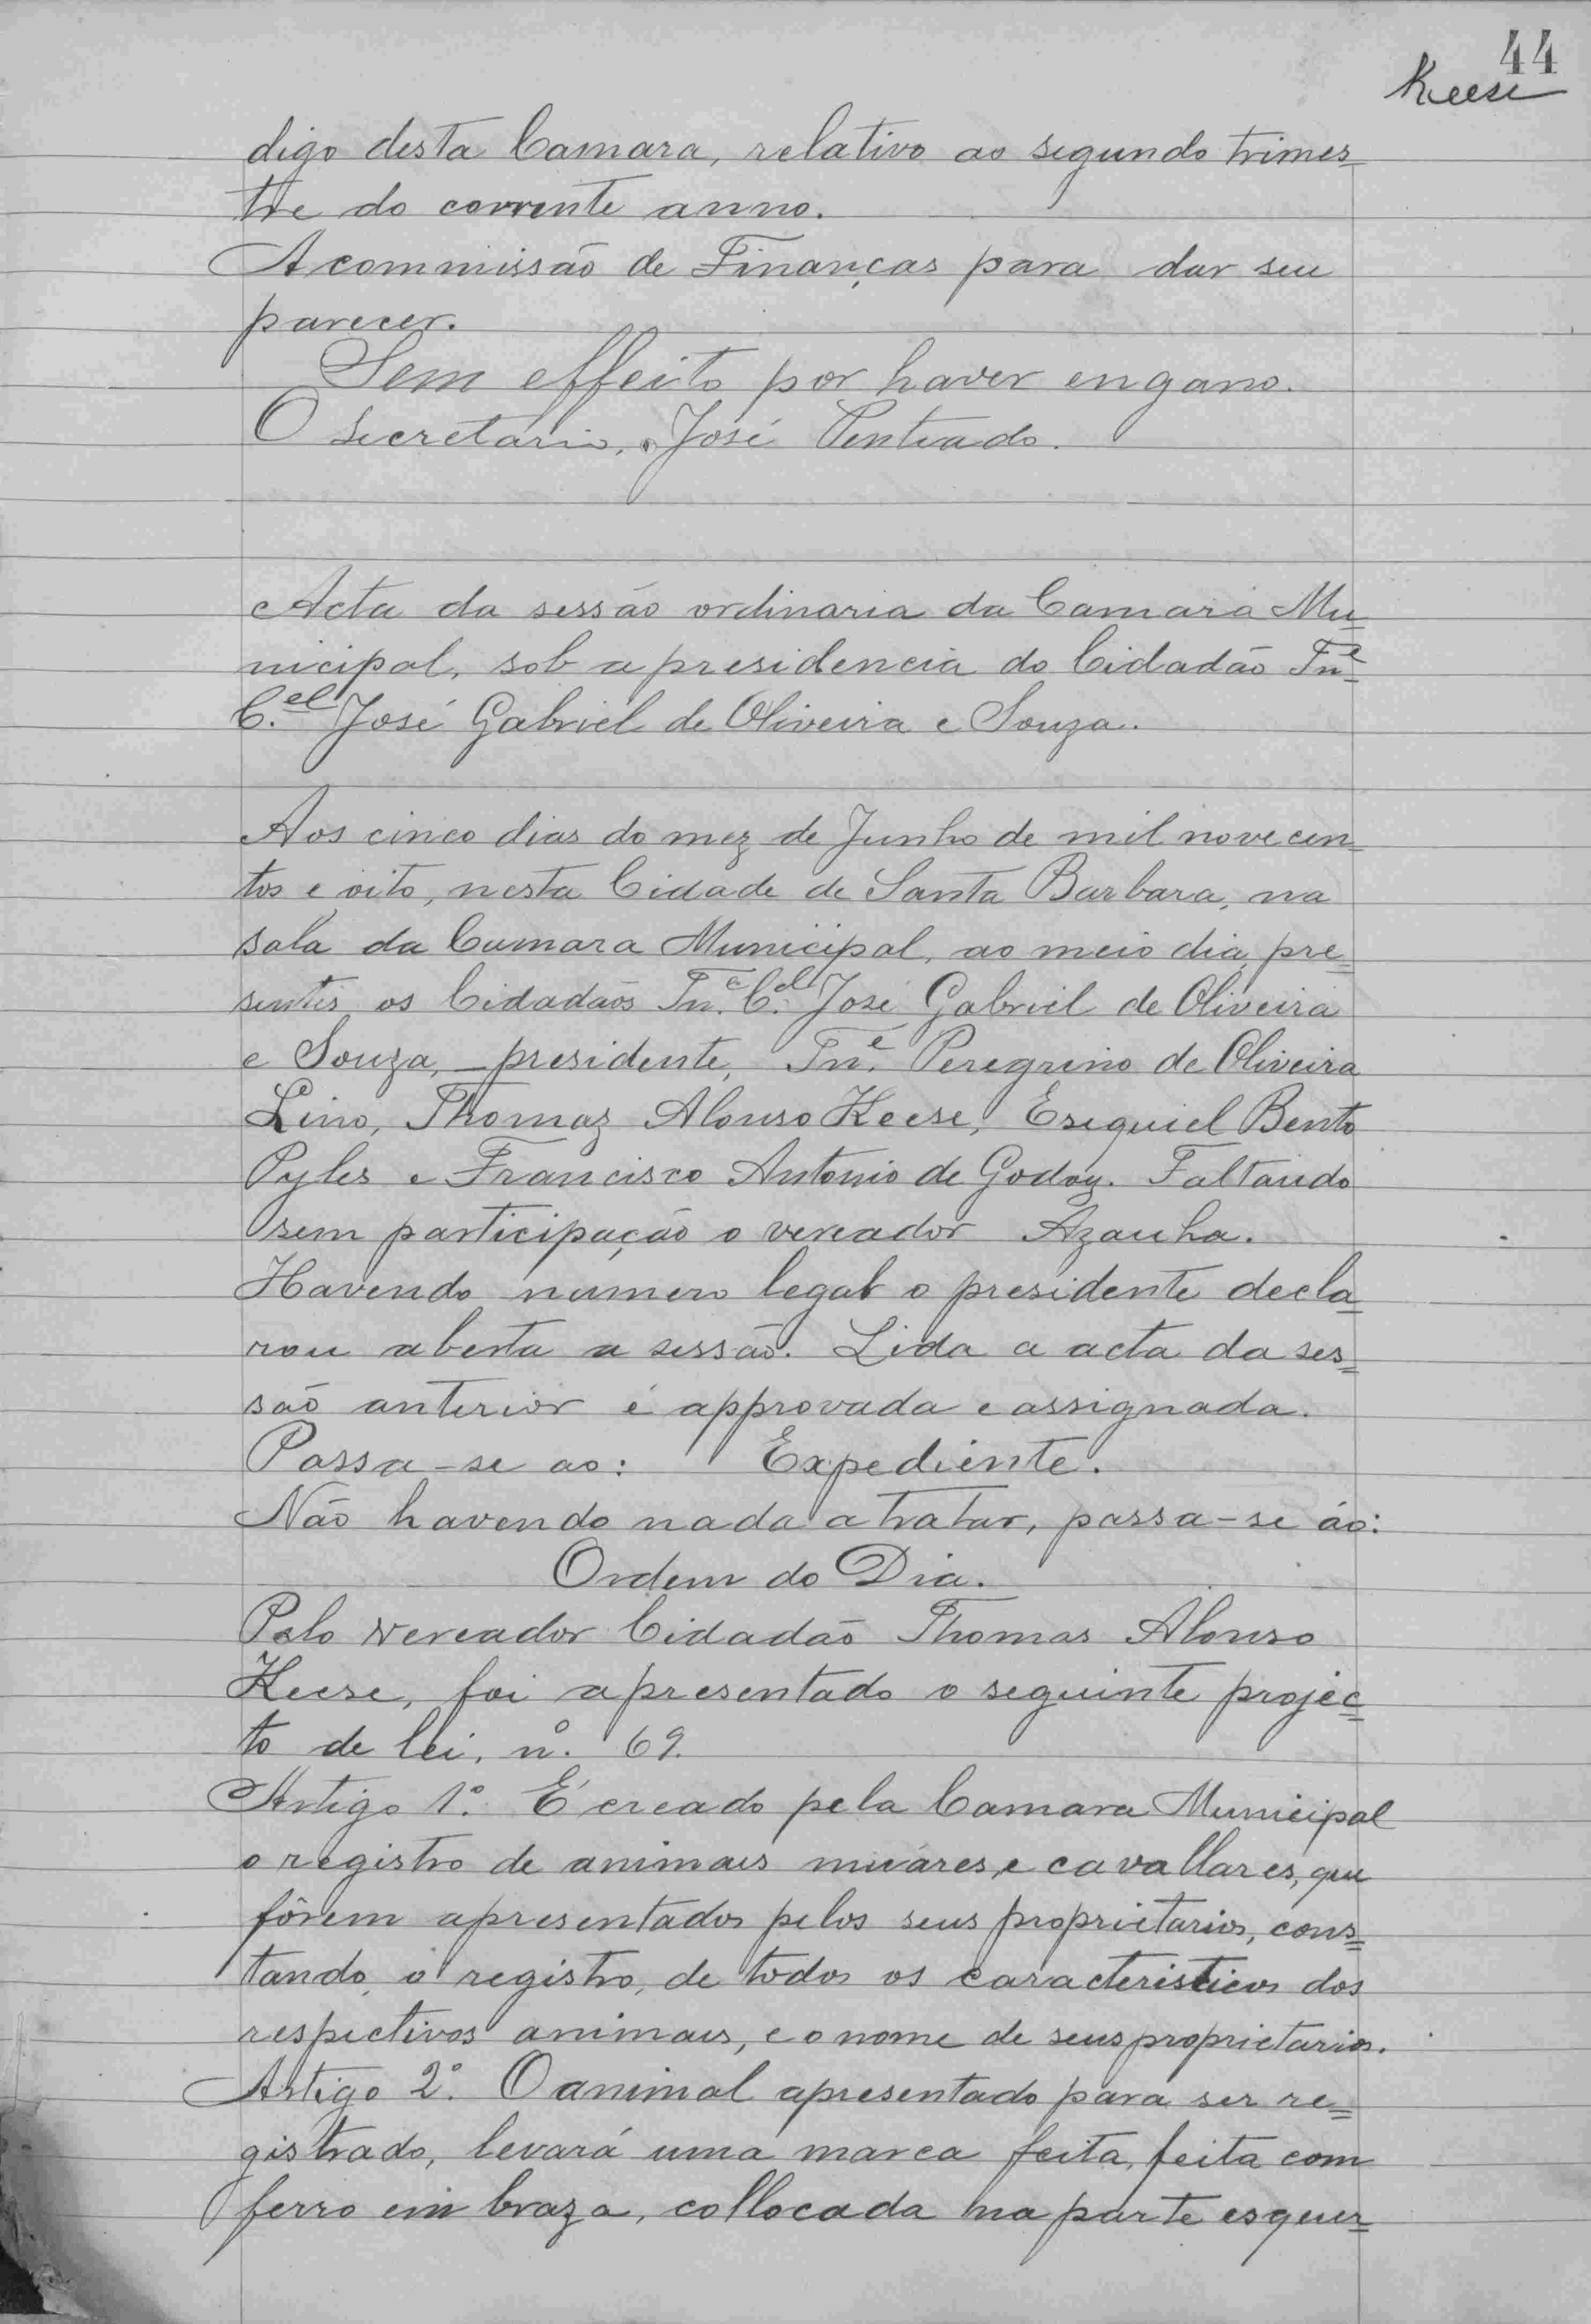 44
Keese
digo desta Camara, relativo ao segundo trimes
tre do corrente anno.
A commissão de Finanças para dar seu
parecer.
Sem effeito por haver engano.
O Secretario, José Penteado.
Acta da sessão ordinaria da Camara Mu=
nicipal, sob a presidencia do Cidadão Tn.e
C.el José Gabriel de Oliveira e Souza.
Aos cinco dias do mez de Junho de mil novecen=
tos e oito, nesta Cidade de Santa Barbara, na
sala da Camara Municipal, ao meio dia, pre=
sentes os Cidadãos Tn.e C.el José Gabriel de Oliveira
e Souza, _presidente, Tn.e Peregrino de Oliveira
Lino, Thomaz Alonso Keese, Esequiel Bento
Pyles e Francisco Antonio de Godoy. Faltando
sem participação o vereador Azanha.
Havendo numero legal o presidente decla=
rou aberta a sessão. Lida a acta da ses=
são anterior é approvada e assignada.
Passa-se ao: Expediente.
Não havendo nada a tratar, passa-se áo:
Ordem do Dia.
Pelo vereador Cidadão Thomas Alonso
Keese, foi apresentado o seguinte projec=
to de lei, nº. 69.
Artigo 1º. É creado pela Camara Municipal
o registro de animaes muáres, e cavallares, que
fôrem apresentados pelos seus proprietarios, cons=
tando, o registro, de todos os caracteristicos dos
respectivos animaes, e o nome de seus proprietarios.
Artigo 2º. O animal apresentado para ser re=
gistrado, levará uma marca feita, feita com
ferro em braza, collocada na parte esquer=